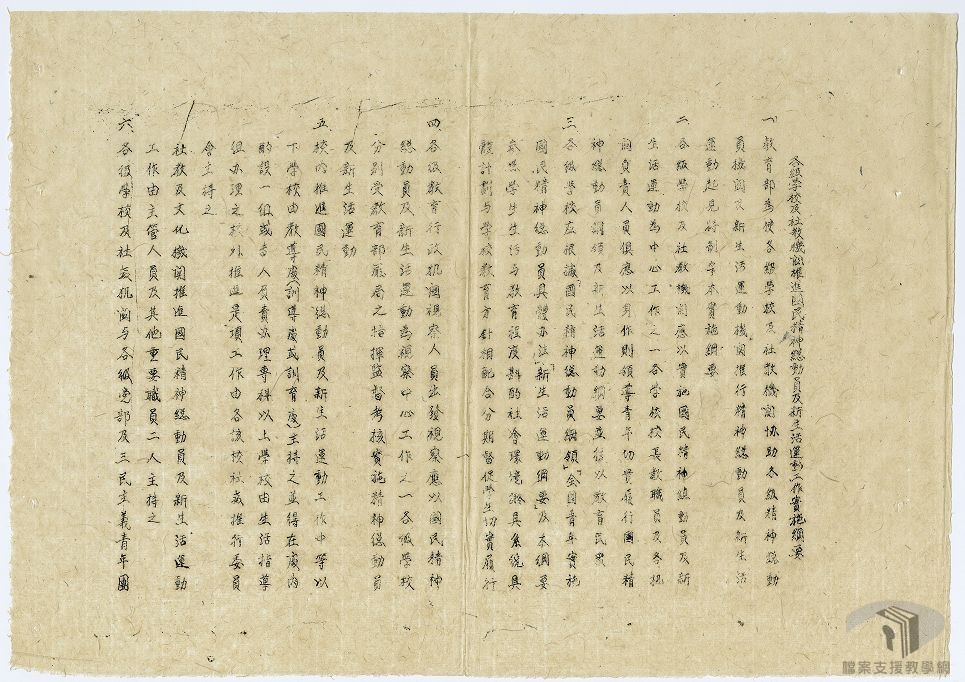 各級學校及社教機関推進國民精神總動員及新生活運動工作實施綱要
一、教育部為使各級學校及社教機関協助各級精神總動
員機関及新生活運動機関推行精神總動員及新生活
運動起見特制本實施綱要
二、各級學校及社教機関應以實施國民精神總動員及新
生活運動為中心工作之一各學校校長教職員及各機
関負責人員俱應以身作則領導青年切實履行國民精
神總動員綱領及新生活運動綱要並徑以教育民眾
三、各級學校应根據「國民精神總動員綱領」「全國青年實施
國民精神總動員具體办法」「新生活運動綱要」及本綱要
參照學生生活与教育程度斟酌社會環境擬具系統具
體計劃与學校教育方針相配合分期督促學生切實履行
四、各級教育行政机関視察人員出發視察應以國民精神
總動員及新生活運動為視察中心工作之一各級學校
分別受教育部廳局之指揮監督考核實施精神總動員
及新生活運動
五、校內推進國民精神總動員及新生活運動工作中等以
下學校由教導處(訓導處或訓育處)主持之並得在處內
酌設一組或专人員責办理專科以上學校由生活指導
組办理之校外推進是項工作由各該校社教推行委員
會主持之
社教及文化機関推進國民精神總動員及新生活運動
工作由主管人員及其他重要職員二人主持之
六、各級學校及社教机関与各級党部及三民主義青年團
檔案支援教學網